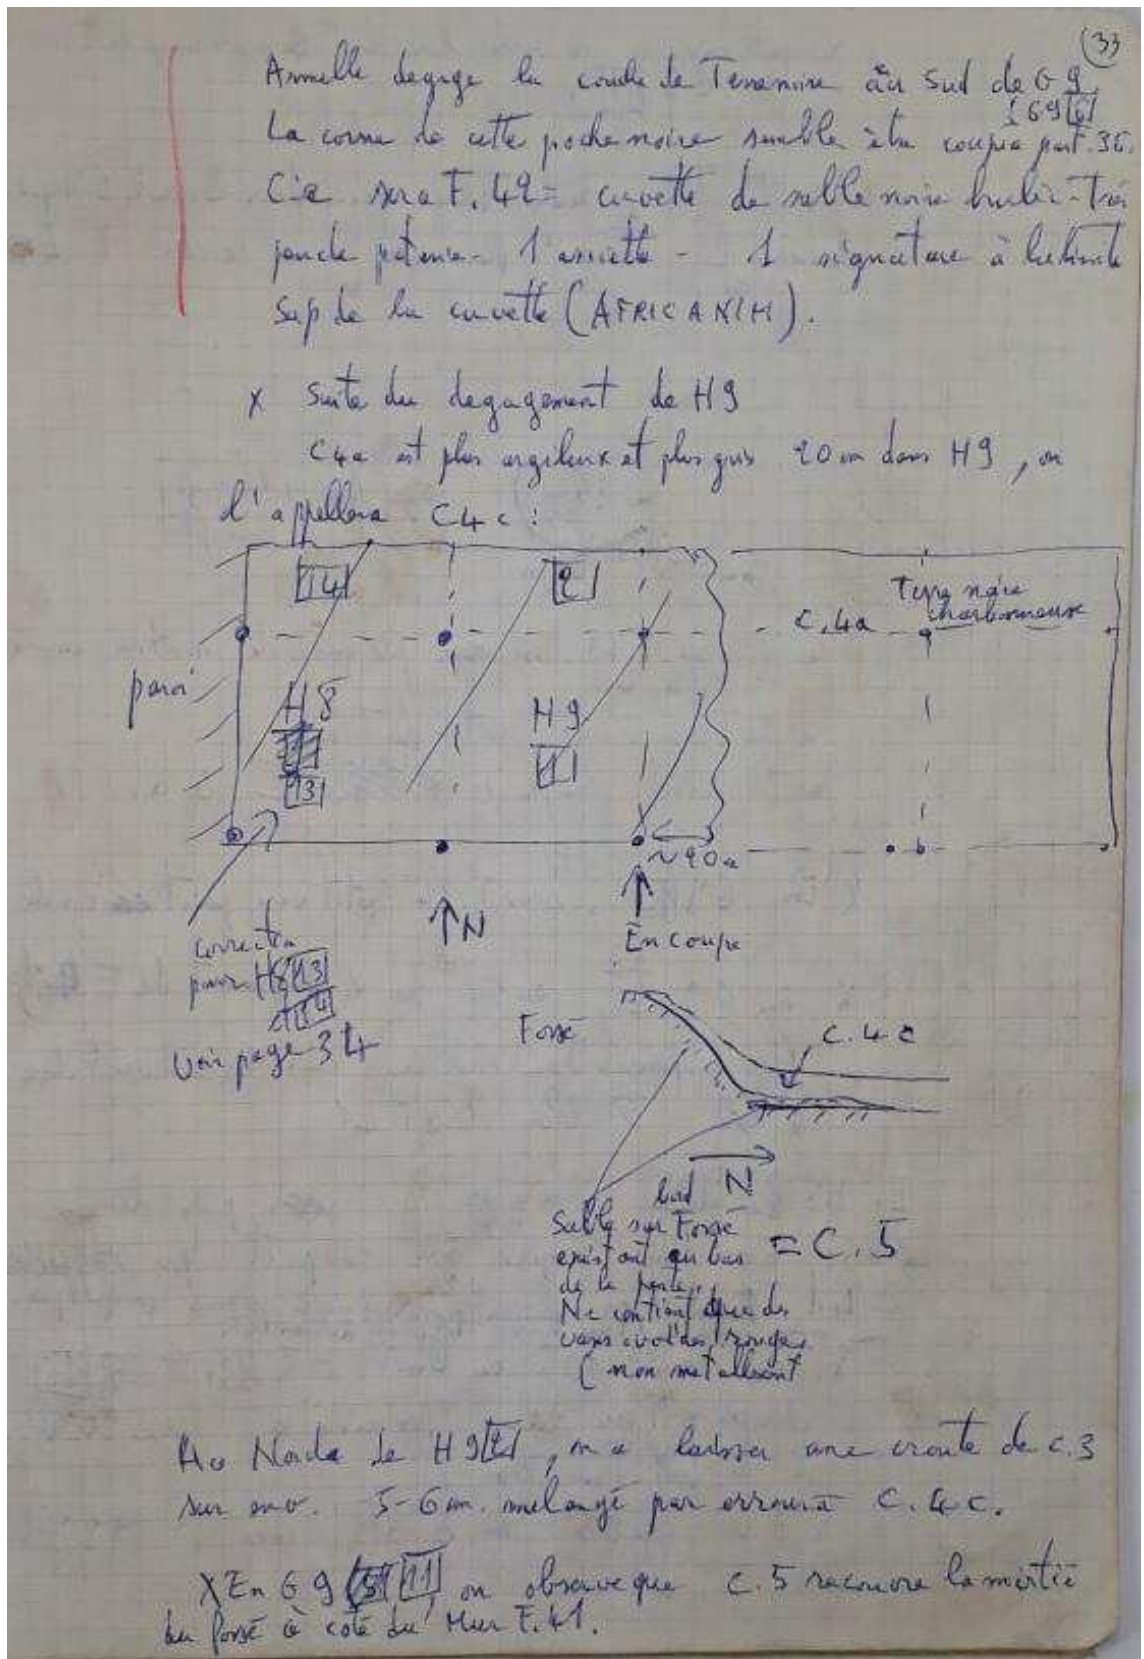 33
Annelle degage la couche de Terre noire au Sud de G 9
G9 6
La corne de cette poche noire semble être coupée par F. 36.
Ce sera F. 42 = cuvette de sable noire brulé - Très
peu de poterie - 1 assiette - 1 signature à la limite
Sup de la cuvette (AFRICANIM).
X Suite du degagement de H9
C4a est plus argileux et plus gris 20 cm dans H9, on
l'appellera C4c :
14
2
Terre noire
charbonneuse
C.4a
paroi
H 8
H 9
13
1
~20
N
En coupe
correction
pour H8 13
14
Voir page 34
Fossé
C. 4 c
N
Sable sur Fossé
existant au bas
de la pente.
= C. 5
Ne contient que des
vases rouges
( non metallescent
Au Nord de H 9 2, on a laisser une croute de c.3
sur 5-6 cm. melangé par erreur à C.4c.
X En G 9 5 11 on observe que C.5 recouvre la moitié
du fossé à coté du Mur F.41.